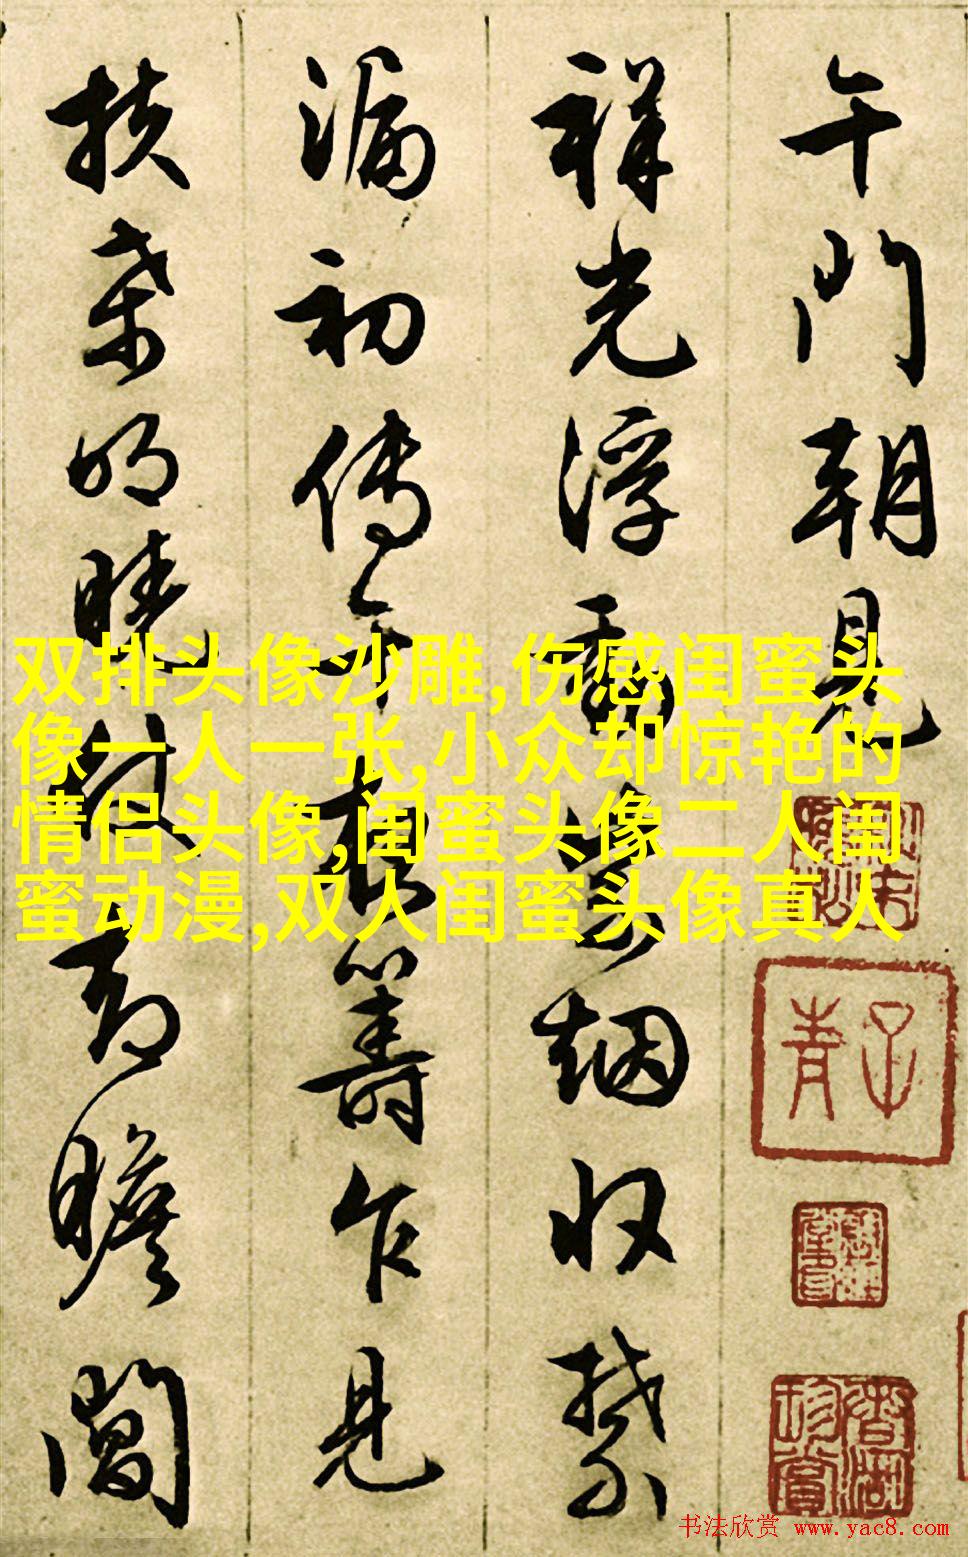 午門朝見
祥光浮烟收禁
漏初傳籌乍見
扶桑明瞻閶
双排头像沙雕,伤感闺蜜头
像一人一张,小众却惊艳的
情侣头像,闺蜜头像二人闺
蜜动漫,双人闺蜜头像真人
子青
书法欣赏 www.yac8.com